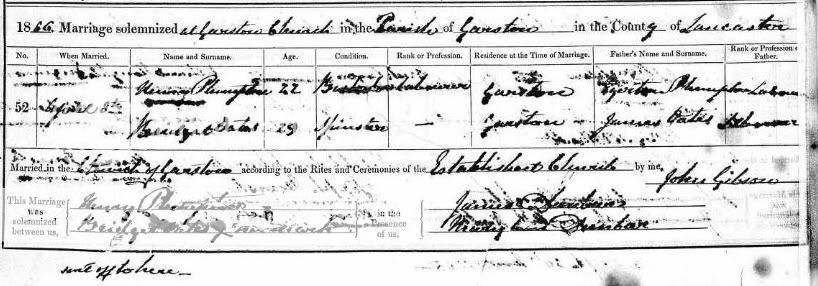 1866. Marriage solemnized at Garston Church in the Parish of Garston in the County of Lancaster
No. When Married. Name and Surname. Age. Condition. Rank or Profession. Residence at the Time of Marriage. Father's Name and Surname. Rank or Profession of Father.
52 April 8th Henry Plumpton 22 Bachelor Labourer Garston Plumpton Labourer
Bridget Oates 29 Spinster — Garston James Oates Labourer
Married in the Church of Garston according to the Rites and Ceremonies of the Established Church by me, John Gibson
This Marriage was solemnized between us, Henry Plumpton in the Presence of us, James
Bridget Oates
sent off to here